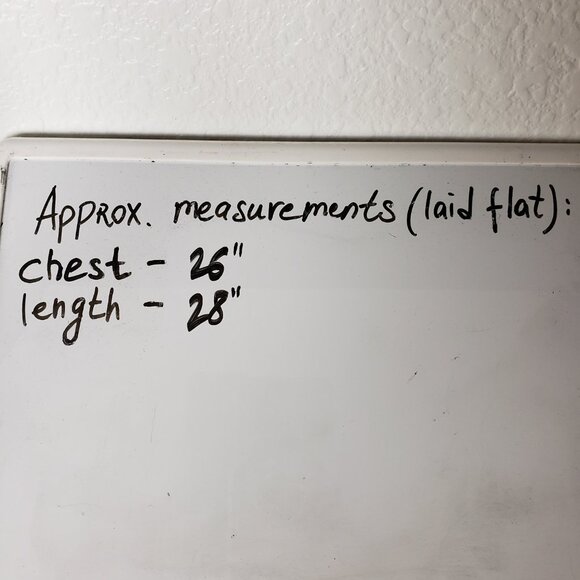 Approx. measurements (laid flat):
chest - 26"
length - 28"